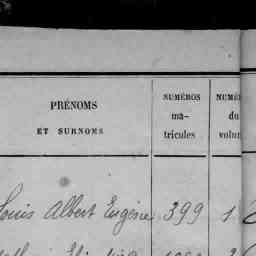 PRÉNOMS
ET SURNOMS
NUMÉROS
ma-
tricules
NUMÉ
du
volum
Louis Albert Eugène 399 1